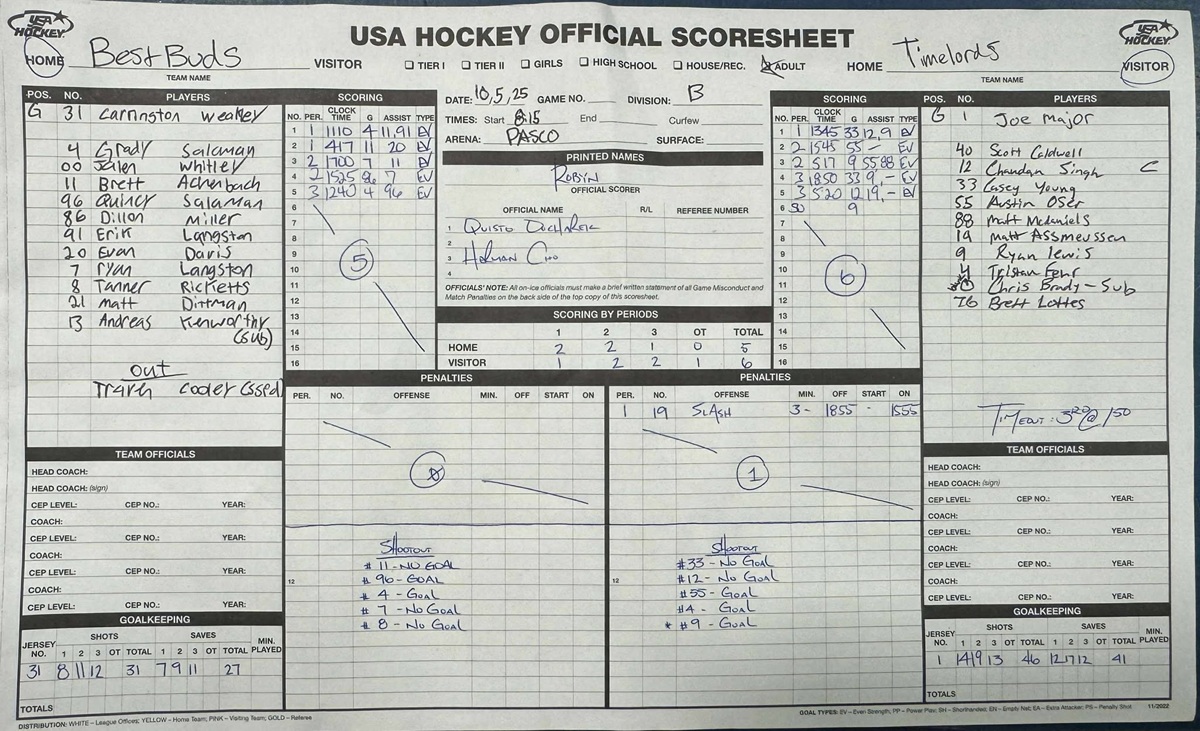 USA HOCKEY
USA HOCKEY OFFICIAL SCORESHEET
USA HOCKEY
HOME Best Buds VISITOR
TEAM NAME
TIER I TIER II GIRLS HIGH SCHOOL HOUSE/REC. ADULT
HOME Timelords VISITOR
TEAM NAME
POS. NO. PLAYERS
G 31 Carrington Weakley
4 Grady Salaman
00 Jalen Whitley
11 Brett Achenbach
96 Quincy Salaman
86 Dillon Miller
91 Erik Langston
20 Evan Davis
7 Ryan Langston
8 Tanner Ricketts
21 Matt Dittman
13 Andreas Kenworthy
(sub)
out
SCORING
NO. PER. CLOCK TIME G ASSIST TYPE
1 1 1110 4 11,91 EV
2 1 417 11 20 EV
3 2 1700 7 11 EV
4 2 1525 86 7 EV
5 3 1240 4 96 EV
6
7
8
9
10
11
12
13
14
15
16
5
DATE: 10,5,25 GAME NO. DIVISION: B
TIMES: Start 8:15 End Curfew
ARENA: PASCO SURFACE:
PRINTED NAMES
Robyn
OFFICIAL SCORER
OFFICIAL NAME R/L REFEREE NUMBER
1 Quisto
2
3
4
OFFICIALS' NOTE: All on-ice officials must make a brief written statement of all Game Misconduct and
Match Penalties on the back side of the top copy of this scoresheet.
SCORING BY PERIODS
1 2 3 OT TOTAL
HOME 2 2 1 0 5
VISITOR 1 2 2 1 6
SCORING
NO. PER. CLOCK TIME G ASSIST TYPE
1 1 1345 33 12,9 EV
2 2 1545 55 - EV
3 2 517 9 55 88 EV
4 3 1850 33 9,- EV
5 3 520 12 19,- EV
6 SO 9
7
8
9
10
11
12
13
14
15
16
6
POS. NO. PLAYERS
G 1 Joe Major
40 Scott Caldwell
12 Chandan Singh C
33 Casey Young
55 Austin Oser
88 Matt McDaniels
19 Matt Assmeussen
9 Ryan Lewis
4 Tristan Fehr
Chris Brady - Sub
76 Brett Lottes
TIMEOUT: 3RD @ 1:50
PENALTIES
PER. NO. OFFENSE MIN. OFF START ON
0
12
Shootout
# 11 - NO GOAL
# 96 - GOAL
# 4 - Goal
# 7 - No Goal
# 8 - No Goal
PENALTIES
PER. NO. OFFENSE MIN. OFF START ON
1 19 SLASH 3- 1855 - 1555
1
12
Shootout
#33 - No Goal
#12 - No Goal
#55 - Goal
#4 - Goal
* #9 - Goal
TEAM OFFICIALS
HEAD COACH:
HEAD COACH: (sign)
CEP LEVEL: CEP NO.: YEAR:
COACH:
CEP LEVEL: CEP NO.: YEAR:
COACH:
CEP LEVEL: CEP NO.: YEAR:
COACH:
CEP LEVEL: CEP NO.: YEAR:
GOALKEEPING
JERSEY NO. SHOTS 1 2 3 OT TOTAL SAVES 1 2 3 OT TOTAL MIN. PLAYED
31 8 11 12 31 7 9 11 27
TOTALS
TEAM OFFICIALS
HEAD COACH:
HEAD COACH: (sign)
CEP LEVEL: CEP NO.: YEAR:
COACH:
CEP LEVEL: CEP NO.: YEAR:
COACH:
CEP LEVEL: CEP NO.: YEAR:
COACH:
CEP LEVEL: CEP NO.: YEAR:
GOALKEEPING
JERSEY NO. SHOTS 1 2 3 OT TOTAL SAVES 1 2 3 OT TOTAL MIN. PLAYED
1 14 19 13 46 12 17 12 41
TOTALS
DISTRIBUTION: WHITE – League Offices; YELLOW – Home Team; PINK – Visiting Team; GOLD – Referee
GOAL TYPES: EV – Even Strength; PP – Power Play; SH – Shorthanded; EN – Empty Net; EA – Extra Attacker; PS – Penalty Shot 11/2022